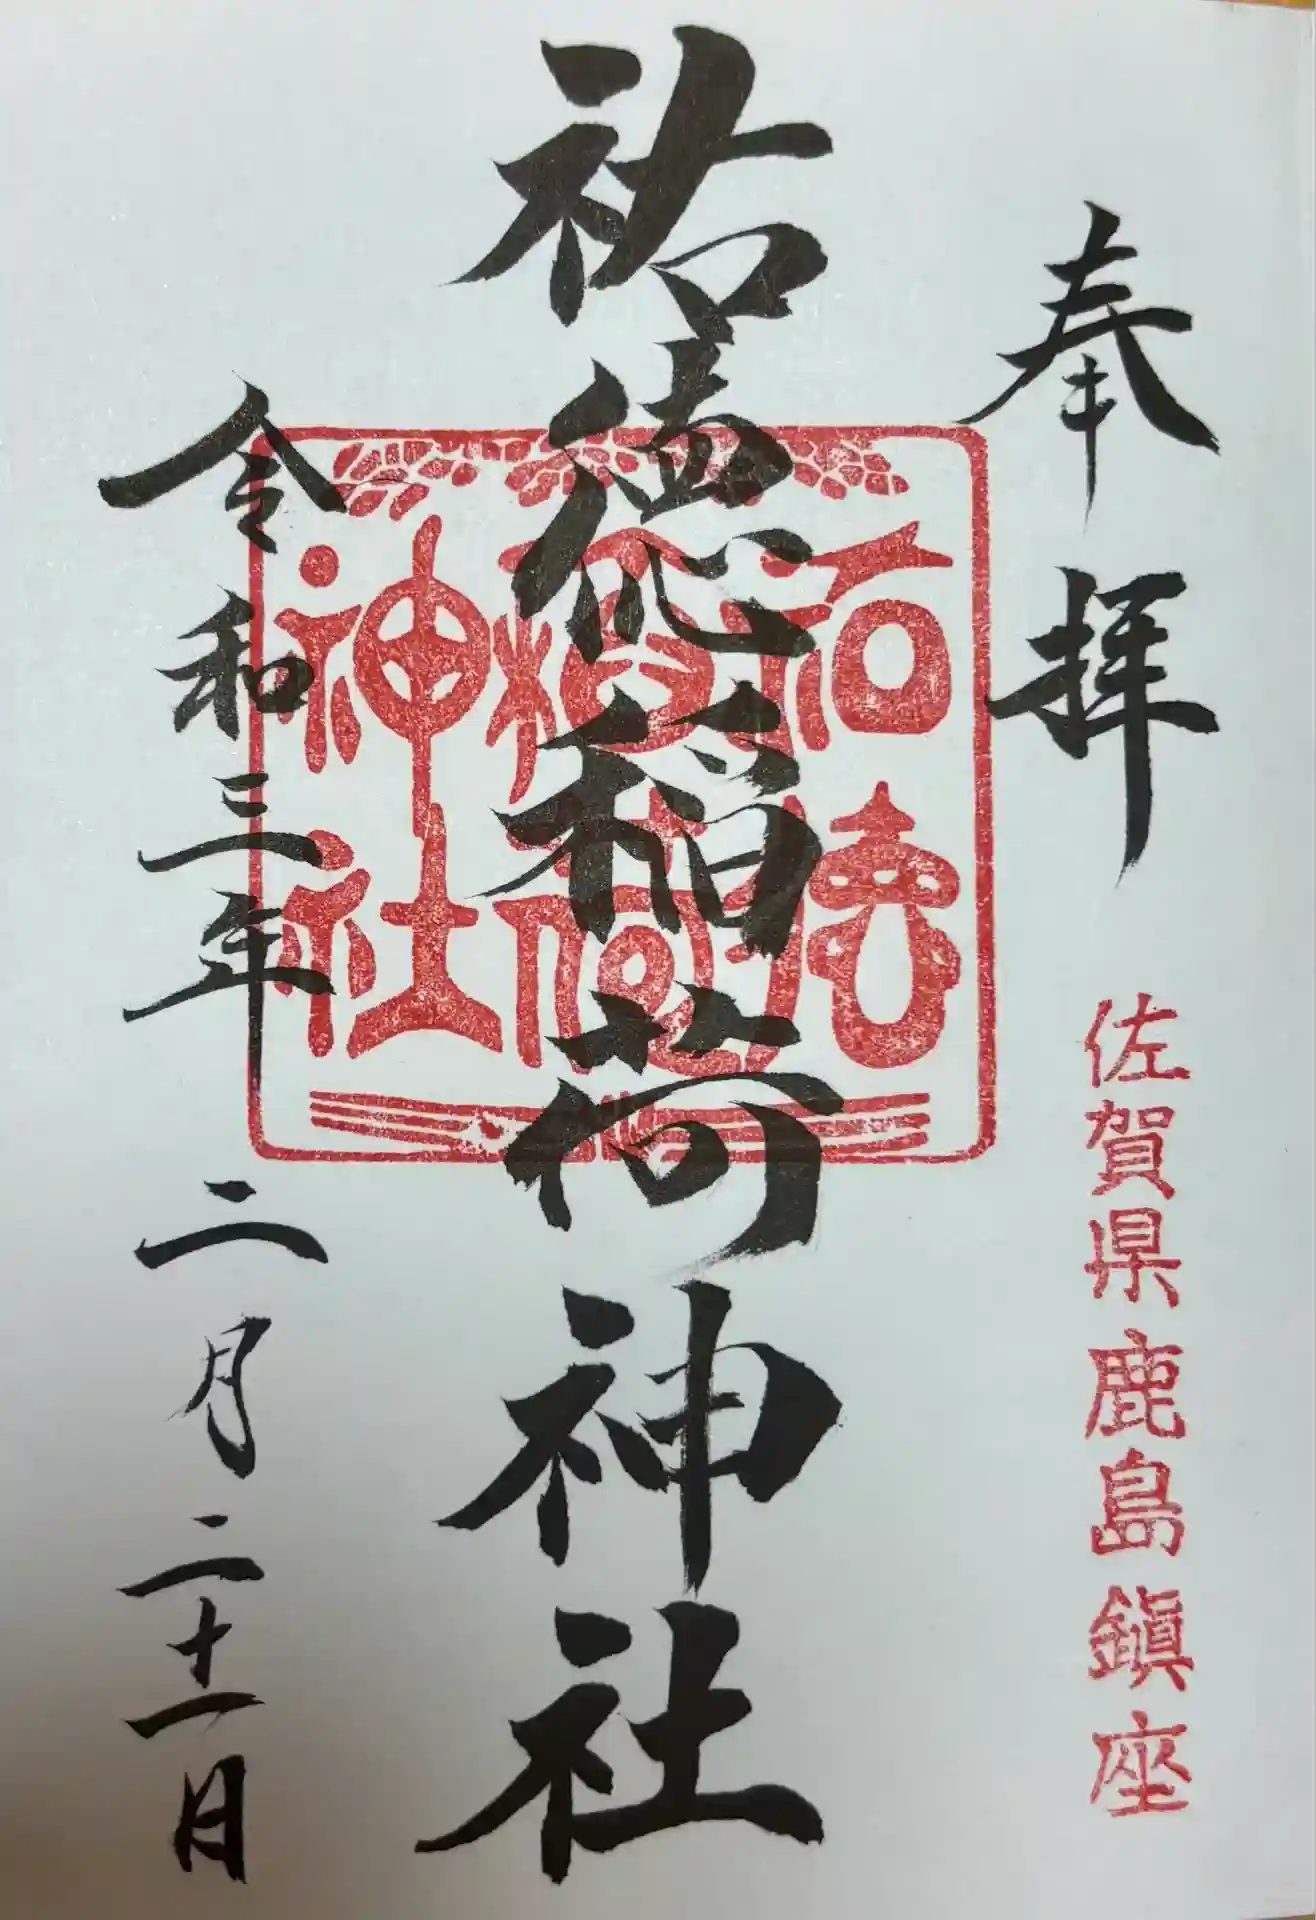 奉拝
佐賀県鹿島鎮座
祐徳稲荷神社
祐徳
稲荷
神社
令和三年二月二十一日